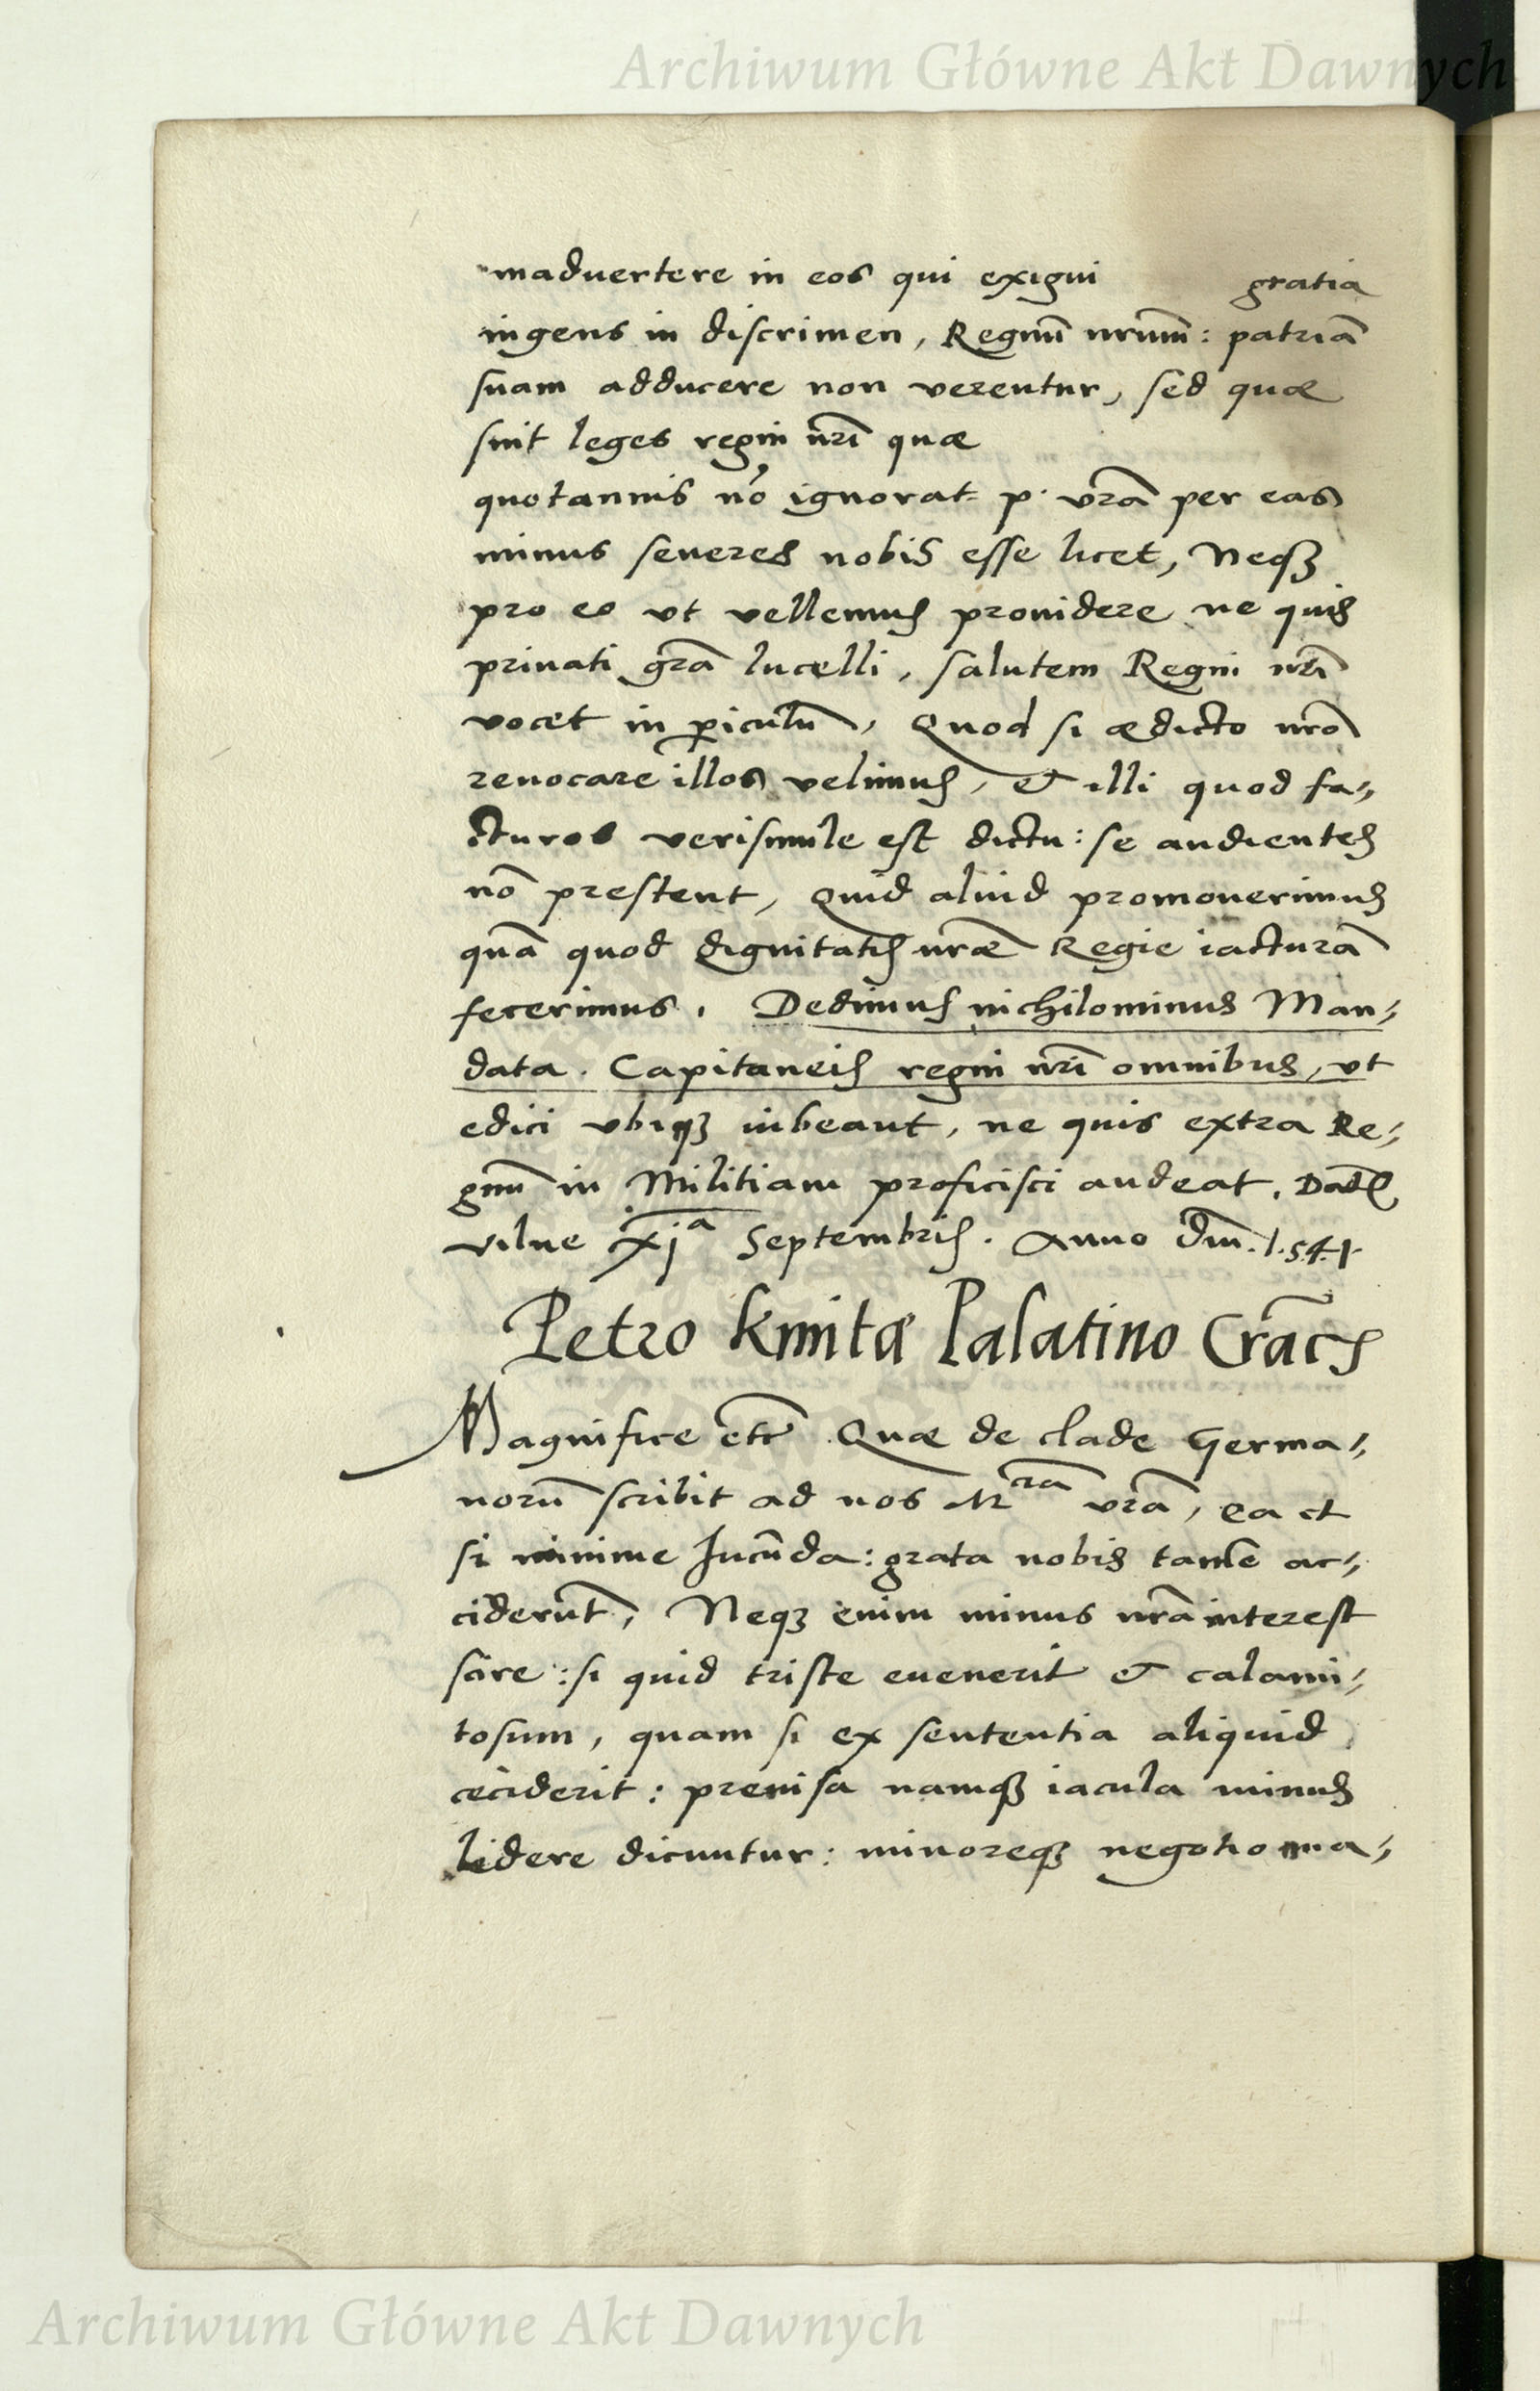 Archiwum Główne Akt Dawnych
maduertere in eos qui exigui gratia
ingens in discrimen, Regnũ nrum̃: patriã
suam adducere non verentur, sed quæ
sint leges regni nrĩ quæ
quotannis nõ ignorat p. vrã per eas
minus seueres nobis esse licet, Neqꝫ
pro eo vt vellemus prouidere ne quis
priuati grã lucelli, salutem Regni nrĩ
vocet in ꝑiculũ, Quod si ædicto nrõ
reuocare illos velimus, & illi quod fa-,
cturos verisimile est dictu: se audientes
nõ prestent, Quid aliud promouerimus
quã quod dignitatis nræ Regie iacturã
fecerimus. Dedimus nichilominus Man-,
data. Capitaneis regni nrĩ omnibus, vt
edici vbiqꝫ iubeant, ne quis extra Re-,
gnũ in Militiam proficisci audeat. Datũ
vilne xjᵃ Septembris. Anno Dm̃. 1.5.4.1.
Petro kmitæ Palatino Crac̃
Magnifice etc̃ Quæ de clade Germa-,
norũ scribit ad nos Mᶜⁱᵃ vrã, ea et
si minime Iucũda: grata nobis tamẽ ac-,
ciderũt, Neqꝫ enim minus nrã interest
scire: si quid triste euenerit & calami-,
tosum, quam si ex sententia aliquid
ceciderit: preuisa namqꝫ iacula minus
lædere dicuntur: minoreqꝫ negotio ma-,
Archiwum Główne Akt Dawnych